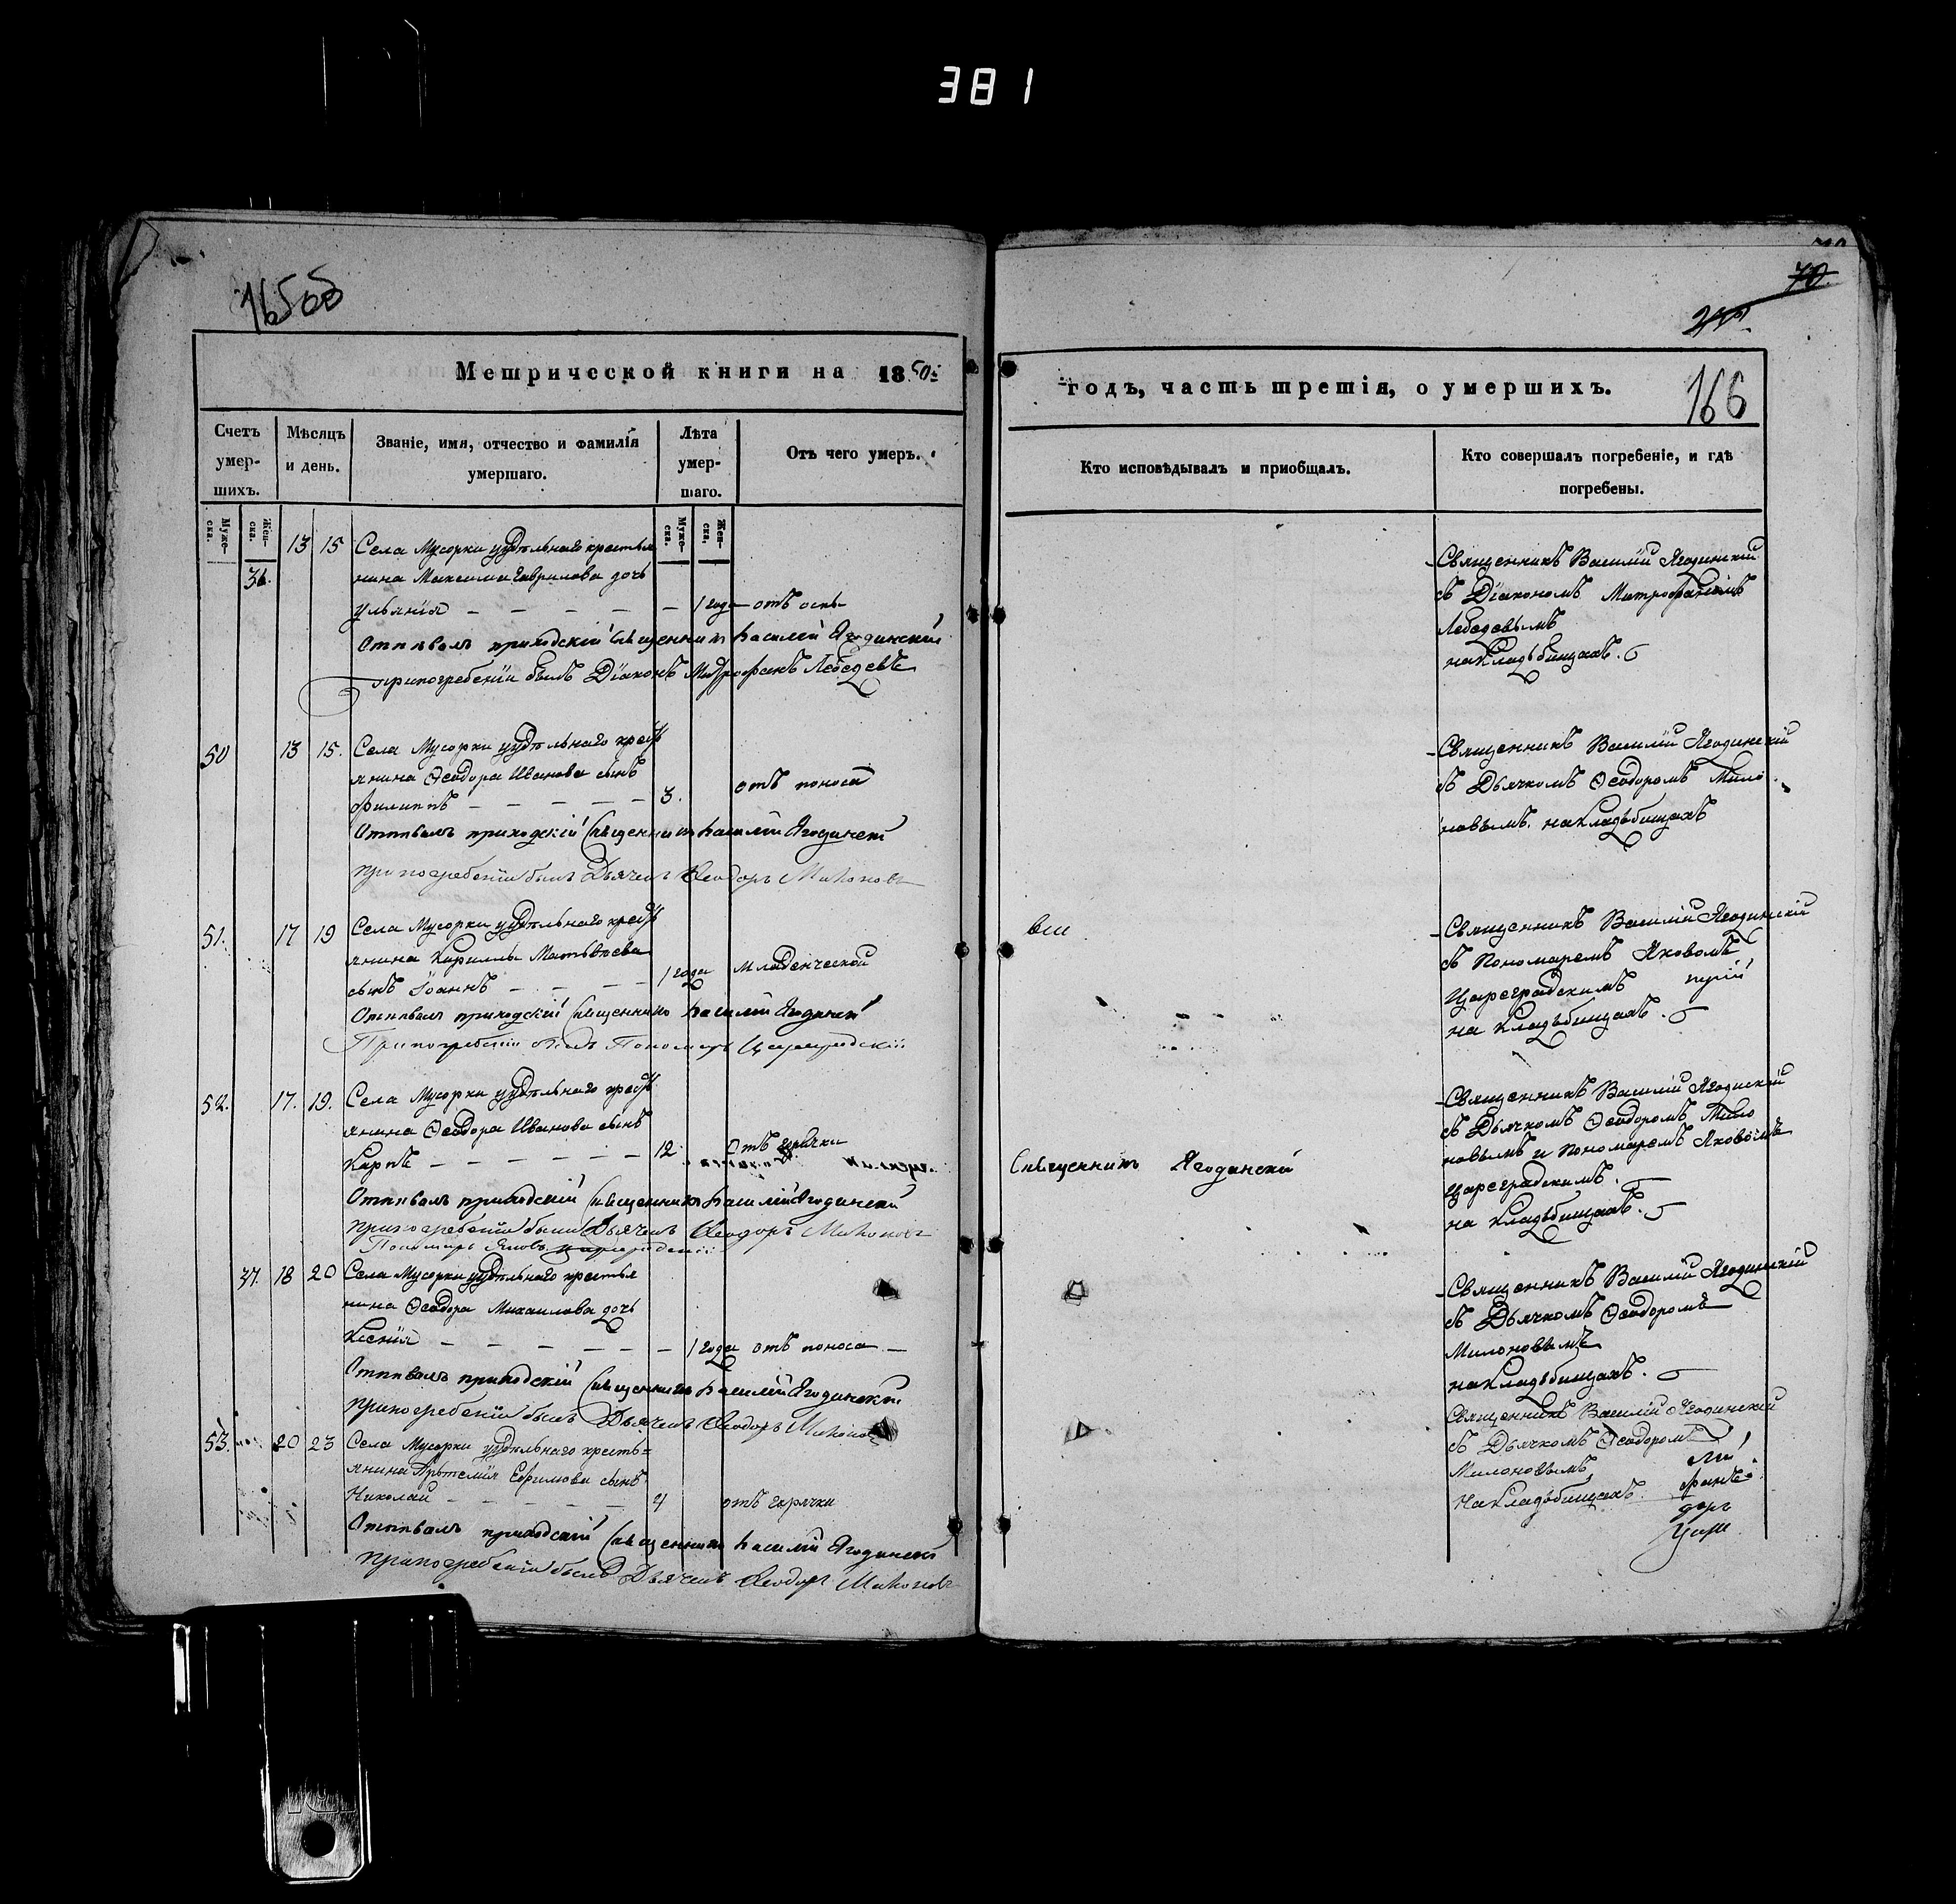 381
165об
70
166
Метрической книги на 1850й
годъ, часть третія, о умершихъ.
Счетъ умер- шихъ.
Мѣсяцъ и день.
Званіе, имя, отчество и фамилія умершаго.
Лѣта умер- шаго.
Отъ чего умеръ.
Кто исповѣдывалъ и пріобщалъ.
Кто совершалъ погребеніе, и гдѣ погребены.
Муже- ска.
Жен- ска.
Муже- ска.
Жен- ска.
36. 13 15 Села Мусорки удѣльнаго крестья
нина Максима Гаврилова дочь
Ульянія — 1 года — отъ оспы
Отпѣвалъ приходскій священникъ Василій Ягодинскій
при погребеніи былъ Діаконъ Митрофанъ Лебедевъ
Священникъ Василій Ягодинскій
съ Діакономъ Митрофаномъ
Лебедевымъ
на кладъбищахъ.
50 13 15. Села Мусорки удѣльнаго крест
янина Ѳеодора Иванова сынъ
Филиппъ — 3. отъ поноса
Отпѣвалъ приходскій священникъ Василій Ягодинскій
при погребеніи былъ Дьячекъ Ѳеодоръ Милоновъ
Священникъ Василій Ягодинскій
съ Дьячкомъ Ѳеодоромъ Мило
новымъ. на кладъбищахъ
51. 17 19 Села Мусорки удѣльнаго крест
янина Кириллы Матвѣева
сынъ Іоаннъ — 1 года Младенческой
Отпѣвалъ приходскій священникъ Василій Ягодинскій
При погребеніи былъ Пономарь Цареградскій
Священникъ Василій Ягодинскій
съ Пономаремъ Яковомъ
Цареградскимъ
на кладъбищахъ.
52. 17. 19. Села Мусорки удѣльнаго крест
янина Ѳеодора Иванова сынъ
Карпъ — 12 Отъ горячки
Отпѣвалъ приходскій священникъ Василій Ягодинскій
при погребеніи были Дьячекъ Ѳеодоръ Милоновъ
Пономарь Яковъ Цареградскій
Священникъ Ягодинскій
Священникъ Василій Ягодинскій
съ Дьячкомъ Ѳеодоромъ Мило
новымъ и Пономаремъ Яковомъ
Цареградскимъ.
на кладъбищахъ.
37. 18 20 Села Мусорки удѣльнаго крестья
нина Ѳеодора Михаилова дочь
Ксенія — 1 года отъ поноса —
Отпѣвалъ приходскій священникъ Василій Ягодинскій
при погребеніи былъ Дьячекъ Ѳеодоръ Милоновъ
Священникъ Василій Ягодинскій
съ Дьячкомъ Ѳеодоромъ
Милоновымъ
на кладъбищахъ.
53. 20 23 Села Мусорки удѣльнаго кресть=
янина Артемія Ефимова сынъ
Николай — 4 отъ горячки
Отпѣвалъ приходскій священникъ Василій Ягодинскій
при погребеніи былъ Дьячекъ Ѳеодоръ Милоновъ
Священникъ Василій Ягодинскій
съ Дьячкомъ Ѳеодоромъ
Милоновымъ
На кладъбищахъ.